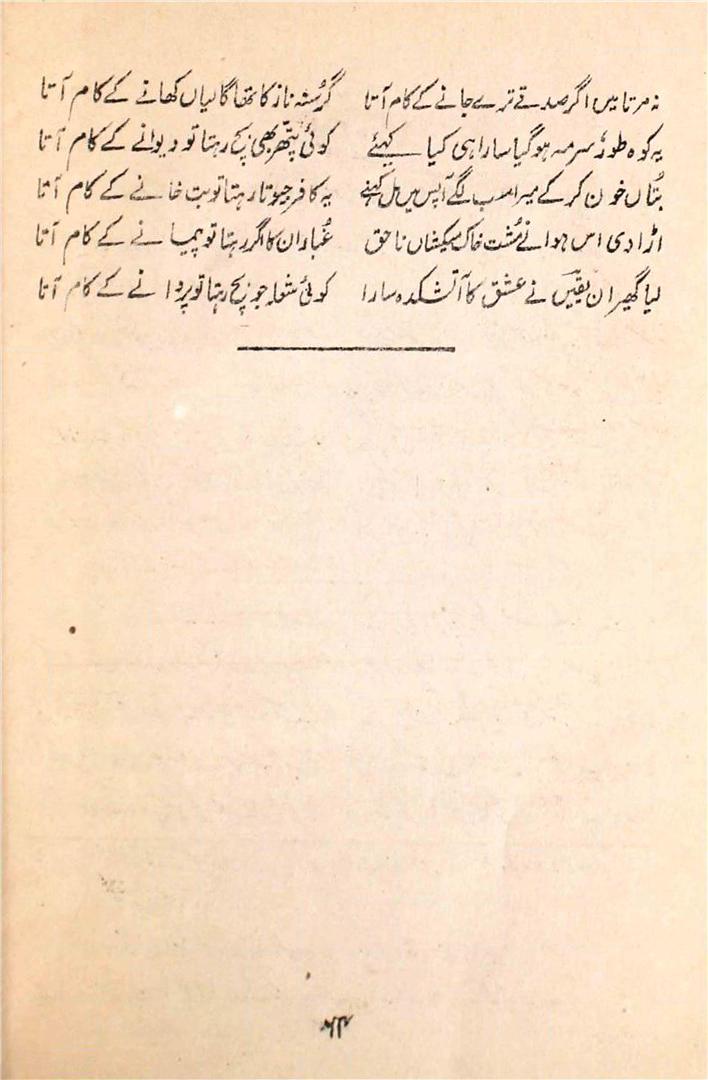 نہ مرتا میں اگر صدقے ترے جانے کے کام آتا گرُسنہ ناز کا تھا گالیاں کھانے کے کام آتا
یہ کوہ طوُر سرمہ ہو گیا سارا ہی کیا کہئے کوئی پتھّر بھی بچ رہتا تو دیوانے کے کام آتا
بتُاں خون کر کے میرا سب لگے آپس میں مل کہنے یہ کافر جیوتا رہتا تو بت خانے کے کام آتا
اڑا دی اس ہوا نے مُشت خاک میکشاں ناحق غُبار ان کا اگر رہتا تو پیمانے کے کام آتا
لیا گھیر ان یقیںؔ نے عشق کا آتشکدہ سارا کوئی شعلہ جو بچ رہتا تو پروانے کے کام آتا